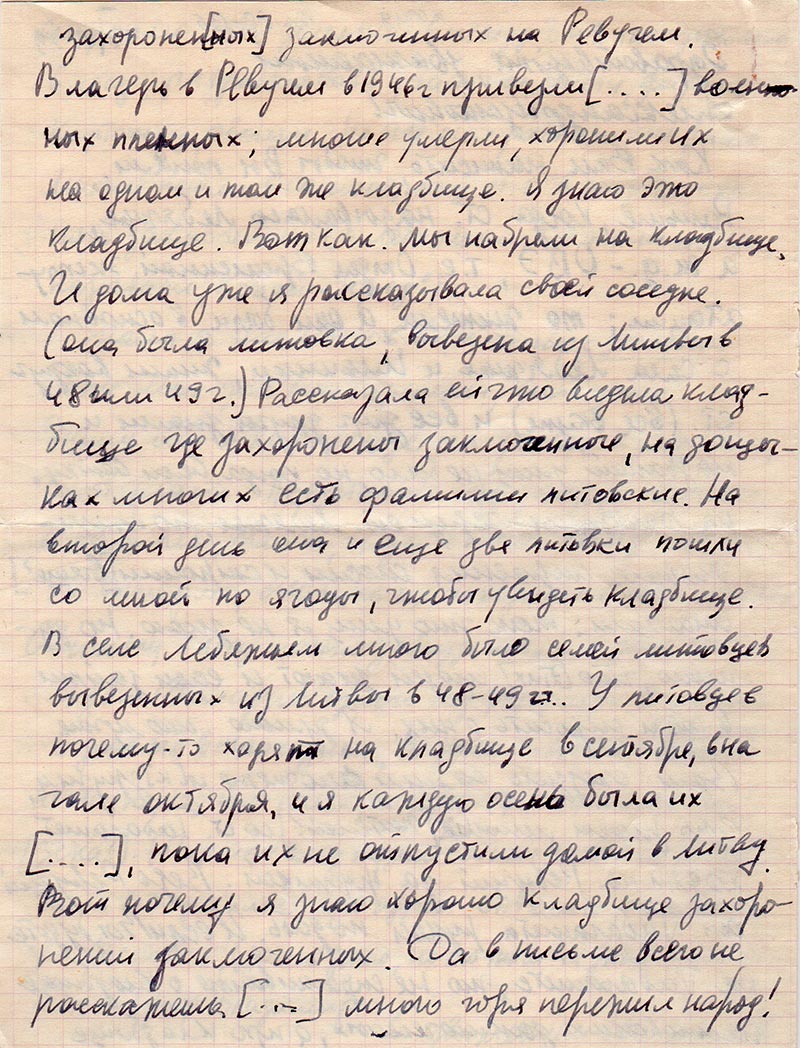 захоронен[ных] заключенных на Ревучем.
В лагерь в Ревучем в 1946г привезли [....] воен-
ных пленных; многие умерли, хоронили их
на одном и том же кладбище. Я знаю это
кладбище. Вот как. Мы набрели на кладбище.
И дома уже я рассказывала своей соседке.
(она была литовка, вывезена из Литвы в
48 или 49 г.) Рассказала ей что видела клад-
бище где захоронены заключенные, на дощеч-
ках многих есть фамилии литовские. На
второй день она и еще две литовки пошли
со мной по ягоды, чтобы увидеть кладбище.
В селе Лебяжьем много было семей литовцев
вывезенных из Литвы в 48-49 гг.. У литовцев
почему-то ходят на кладбище в сентябре, в на
чале октября, и я каждую осень была их
[....], пока их не отпустили домой в Литву.
Вот почему я знаю хорошо кладбище захоро-
нений заключенных. Да в письме всего не
расскажешь [...] много горя пережил народ!